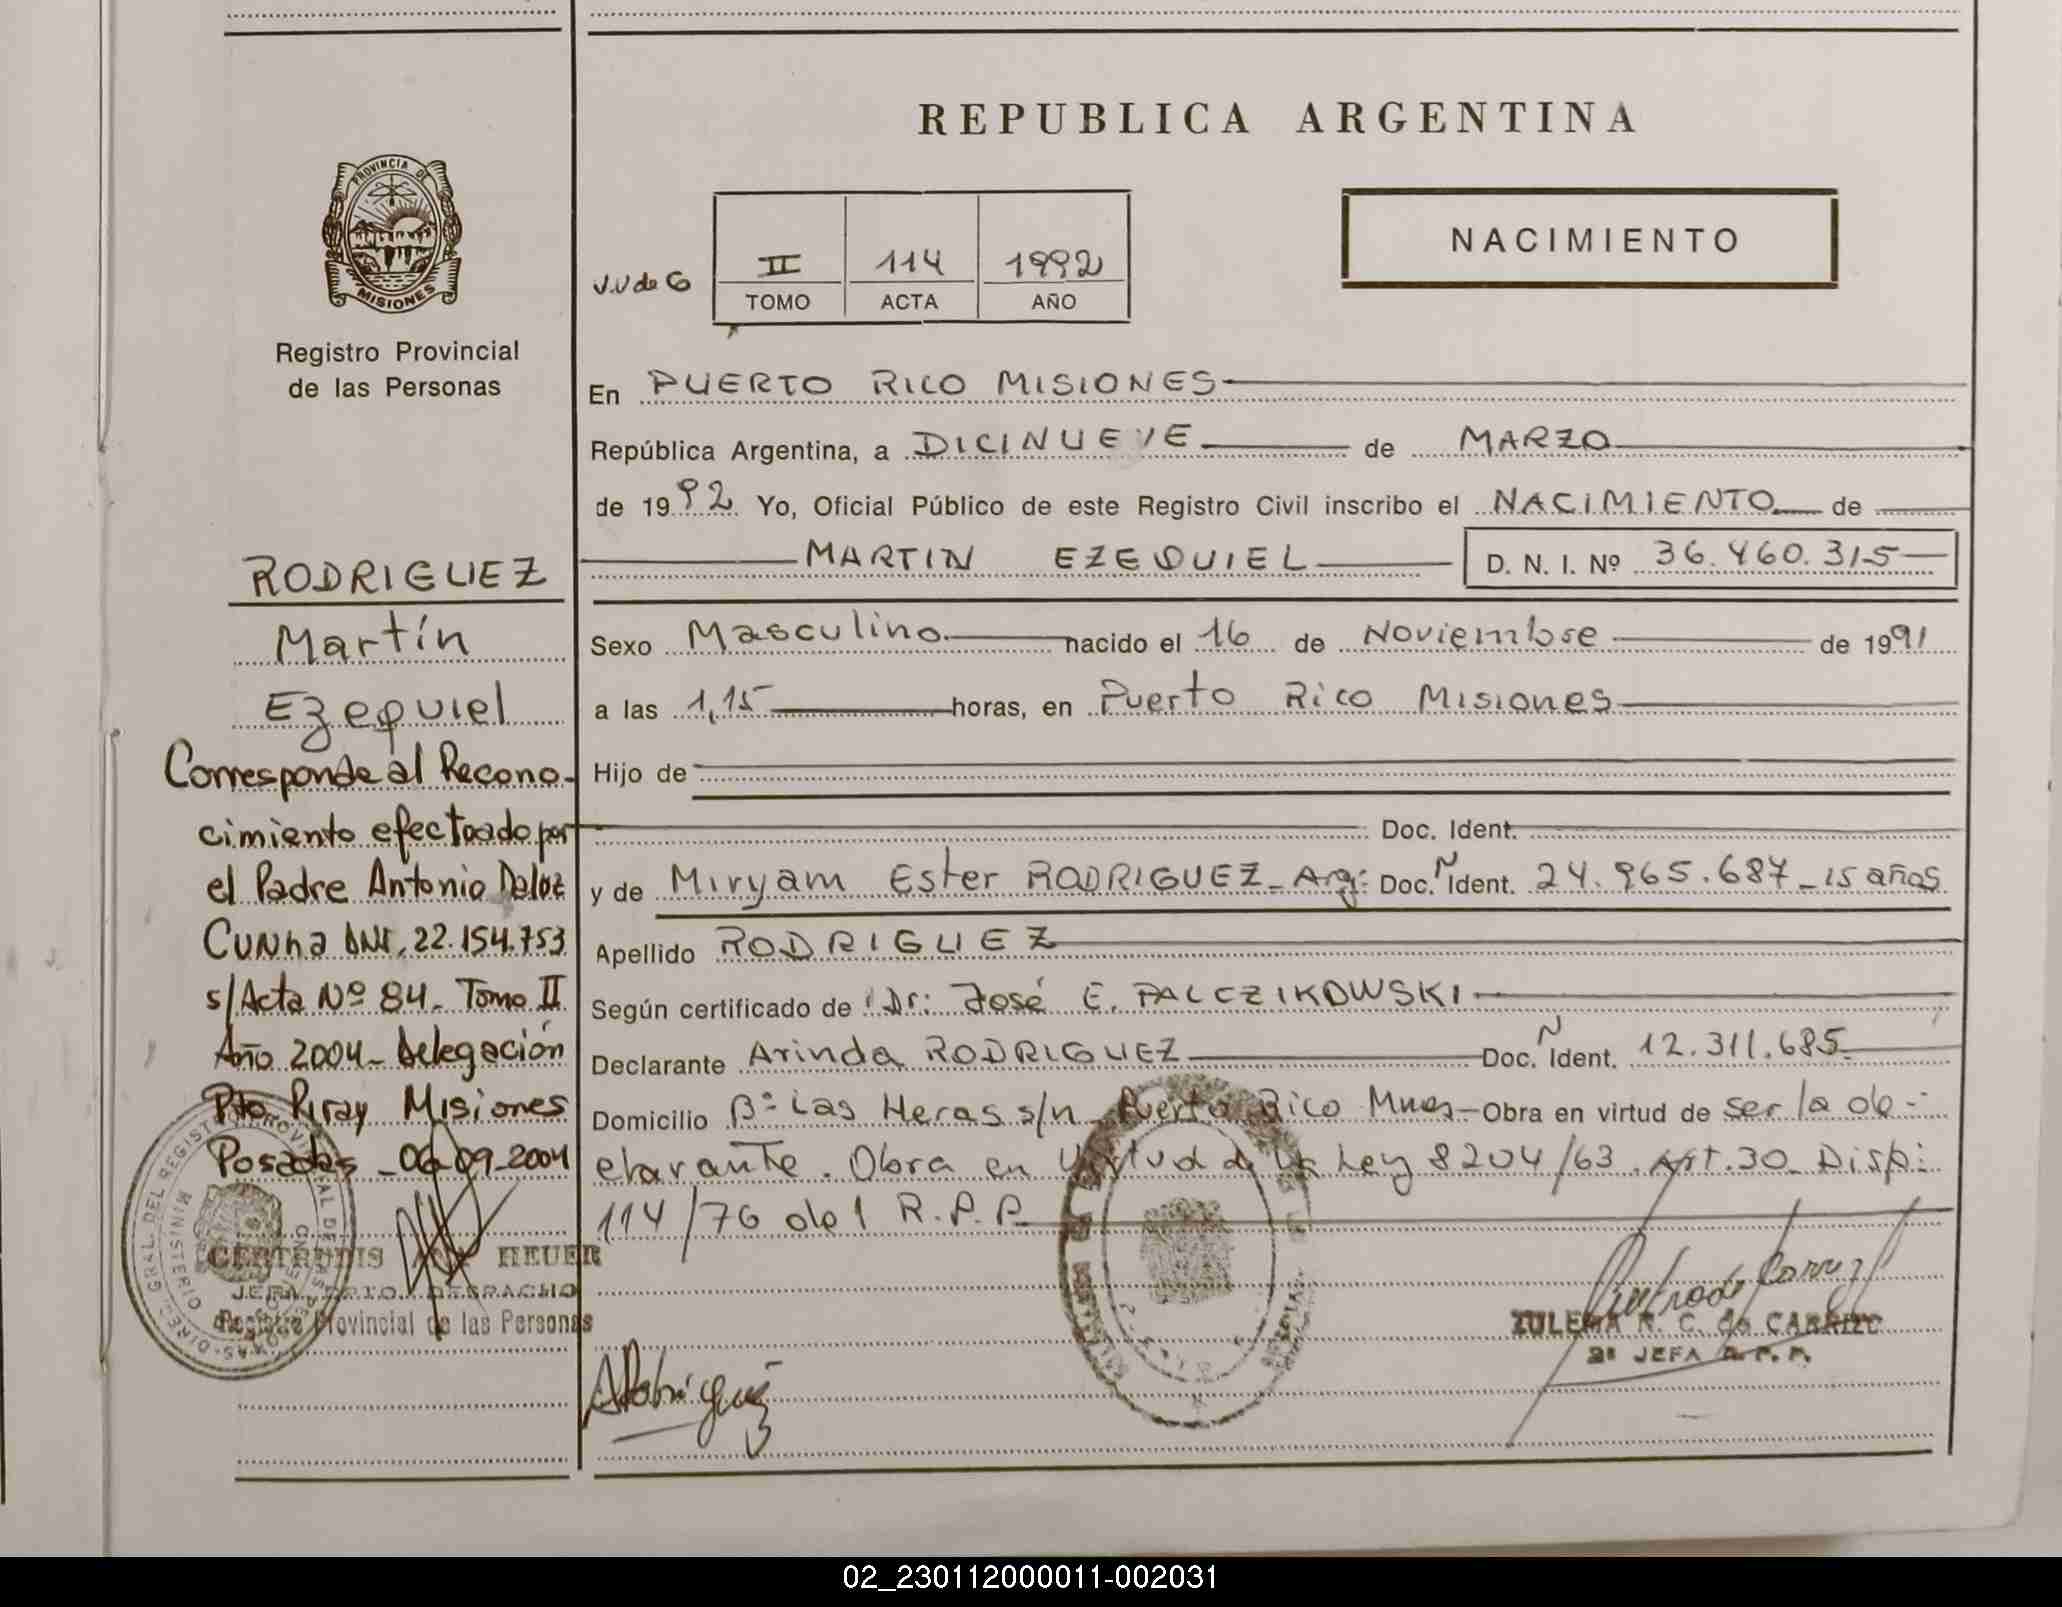 REPUBLICA ARGENTINA
PROVINCIA DE
MISIONES
Registro Provincial
de las Personas
NACIMIENTO
II 114 1992
TOMO ACTA AÑO
En PUERTO RICO MISIONES
República Argentina, a DICINUEVE de MARZO
de 1992 Yo, Oficial Público de este Registro Civil inscribo el NACIMIENTO de
MARTIN EZEQUIEL D. N. I. Nº 36.460.315
Sexo Masculino nacido el 16 de Noviembre de 1991
a las 1,15 horas, en Puerto Rico Misiones
Hijo de
Doc. Ident.
y de Miryam Ester RODRIGUEZ - Arg: Doc. N Ident. 24.965.687 - 15 años
Apellido RODRIGUEZ
Según certificado de Dr: José E. PALCZIKOWSKI
Declarante Arinda RODRIGUEZ Doc. N Ident. 12.311.685
Domicilio Bº Las Heras s/n Puerto Rico Mnes Obra en virtud de ser la de-
clarante. Obra en Virtud de la Ley 8204/63. Art. 30. Disp:
114/76 del R.P.P.
RODRIGUEZ
Martín
Ezequiel
Corresponde al Recono-
cimiento efectuado por
el Padre Antonio
Cunha DNI. 22.154.753
s/Acta Nº 84 - Tomo II
Año 2004 - Delegación
Pto. Piray Misiones
Posadas - 06-09-2004
GERTRUDIS HEUER
JEFA DPTO. DESPACHO
Registro Provincial de las Personas
ARodriguez
ZULEMA R. C. de CARRIZO
2ª JEFA R. P. P.
02_230112000011-002031